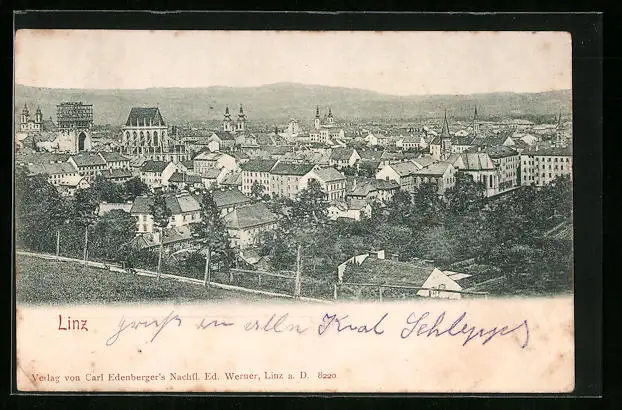 Linz
Gruß an allen Karl Schlepper
Verlag von Carl Edenberger's Nachfl. Ed. Werner, Linz a. D. 8220